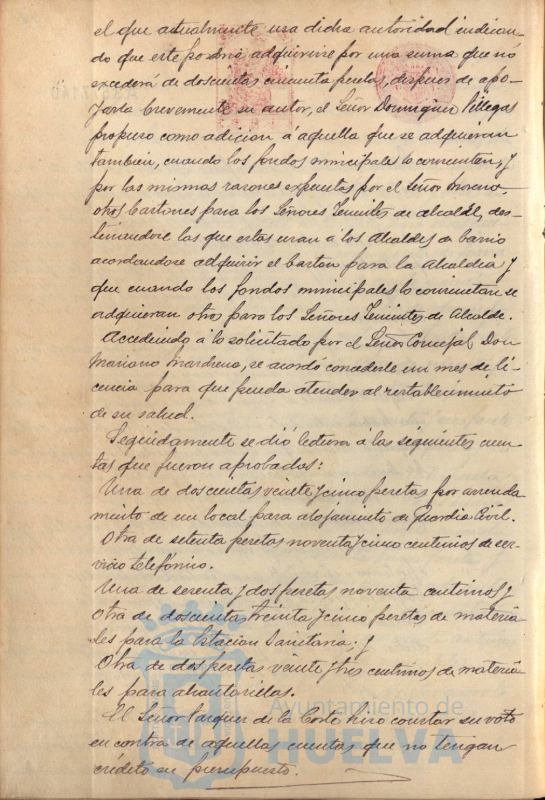 el que actualmente usa dicha autoridad indican-
do que este podria adquirirse por una suma que no
excederá de doscientas cincuenta pesetas, despues de apo-
yarla brevemente su autor, el Señor Dominguez Villegas
propuso como adicion á aquella que se adquieran
tambien, cuando los fondos municipales lo consientan, y
por las mismas razones expuestas por el Señor Moreno,
otros bastones para los Señores Tenientes de alcalde, des-
tinandose los que estos usan á los Alcaldes de barrio
acordandose adquirir el baston para la Alcaldia y
que cuando los fondos municipales lo consientan se
adquieran otros para los Señores Tenientes de Alcalde.
Accediendo á lo solicitado por el Señor Concejal, Don
Mariano Mardrena, se acordó concederle un mes de li-
cencia para que pueda atender al restablecimiento
de su salud.
Seguidamente se dió lectura á las siguientes cuen-
tas que fueron aprobadas:
Una de doscientas veinte y cinco pesetas por arrenda
miento de un local para alojamiento de Guardia Civil.
Otra de setenta pesetas noventa y cinco centimos de ser-
vicio telefónico.
Una de sesenta y dos pesetas noventa centimos y
Otra de doscientas treinta y cinco pesetas de materia
les para la Estacion Sanitaria. y
Otra de dos pesetas veinte y tres centimos de materia
les para alcantarillas.
El Señor Vazquez de la Corte hizo constar su voto
en contra de aquellas cuentas que no tengan
crédito en presupuesto.
Ayuntamiento de
HUELVA